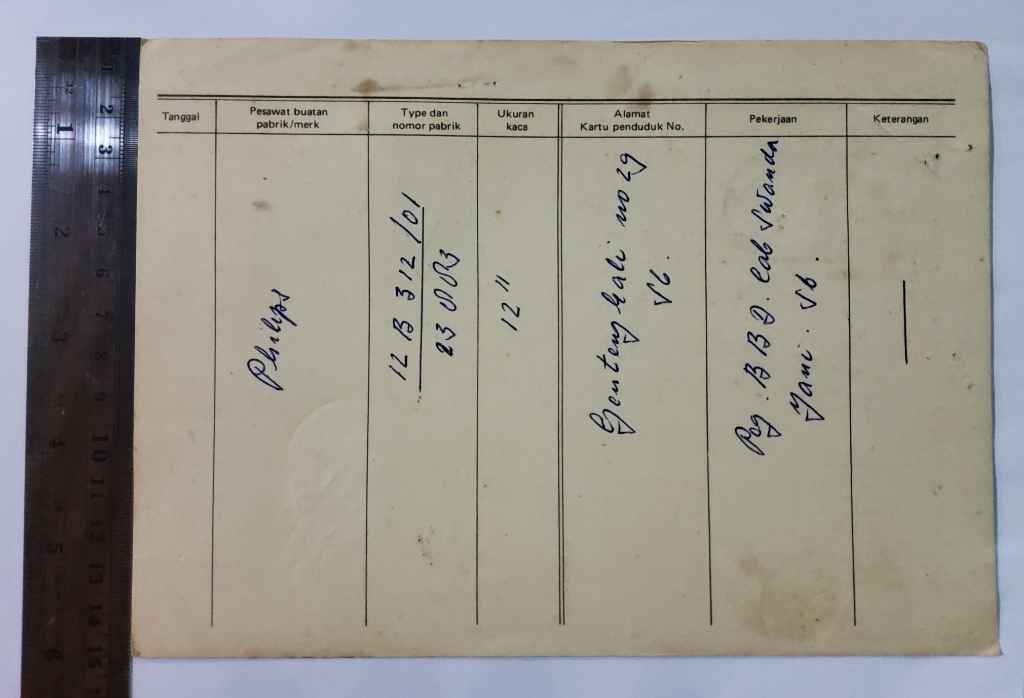 Tanggal
Pesawat buatan
pabrik/merk
Type dan
nomor pabrik
Ukuran
kaca
Alamat
Kartu penduduk No.
Pekerjaan
Keterangan
Philips
12 B 312 /01
12"
Genteng kali no 29
Sb.
Peg. B B D. Cab
Yani. Sb.
1
2
3
4
5
6
1
2
3
1
5
6
7
8
9
10
11
12
13
14
15